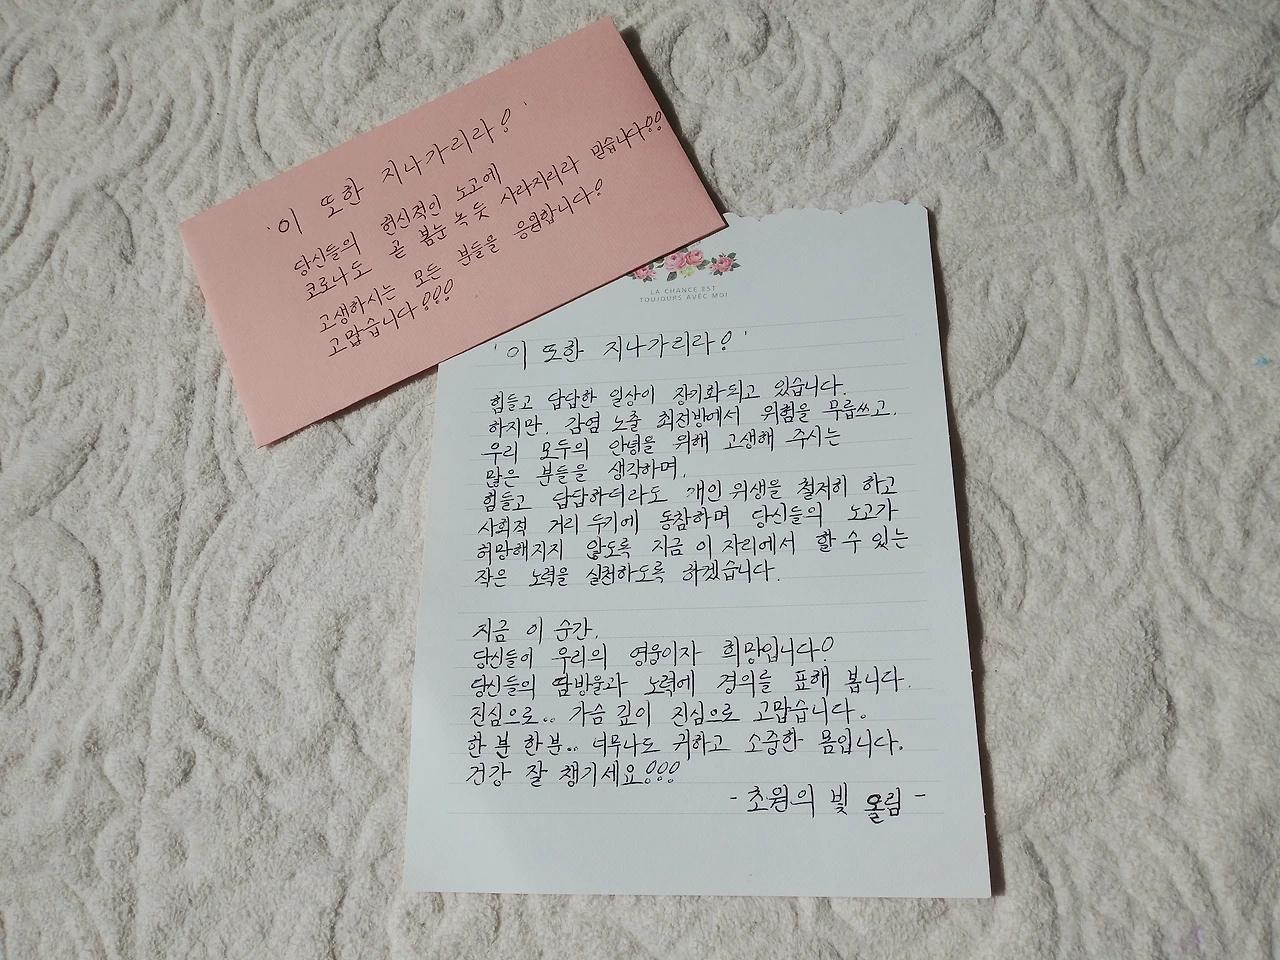 '이 또한 지나가리라!'
당신들의 헌신적인 노고에
코로나도 곧 봄눈 녹듯 사라지리라 믿습니다!!
고생하시는 모든 분들을 응원합니다!
고맙습니다!!!
LA CHANCE EST
TOUJOURS AVEC MOI
'이 또한 지나가리라!'
힘들고 답답한 일상이 장기화되고 있습니다.
하지만, 감염 노출 최전방에서 위험을 무릅쓰고,
우리 모두의 안녕을 위해 고생해 주시는
많은 분들을 생각하며,
힘들고 답답하더라도 개인 위생을 철저히 하고
사회적 거리 두기에 동참하며 당신들의 노고가
허망해지지 않도록 지금 이 자리에서 할 수 있는
작은 노력을 실천하도록 하겠습니다.
지금 이 순간,
당신들이 우리의 영웅이자 희망입니다!
당신들의 땀방울과 노력에 경의를 표해 봅니다.
진심으로.. 가슴 깊이 진심으로 고맙습니다.
한 분 한 분.. 너무나도 귀하고 소중한 몸입니다.
건강 잘 챙기세요!!!
- 초원의 빛 올림 -